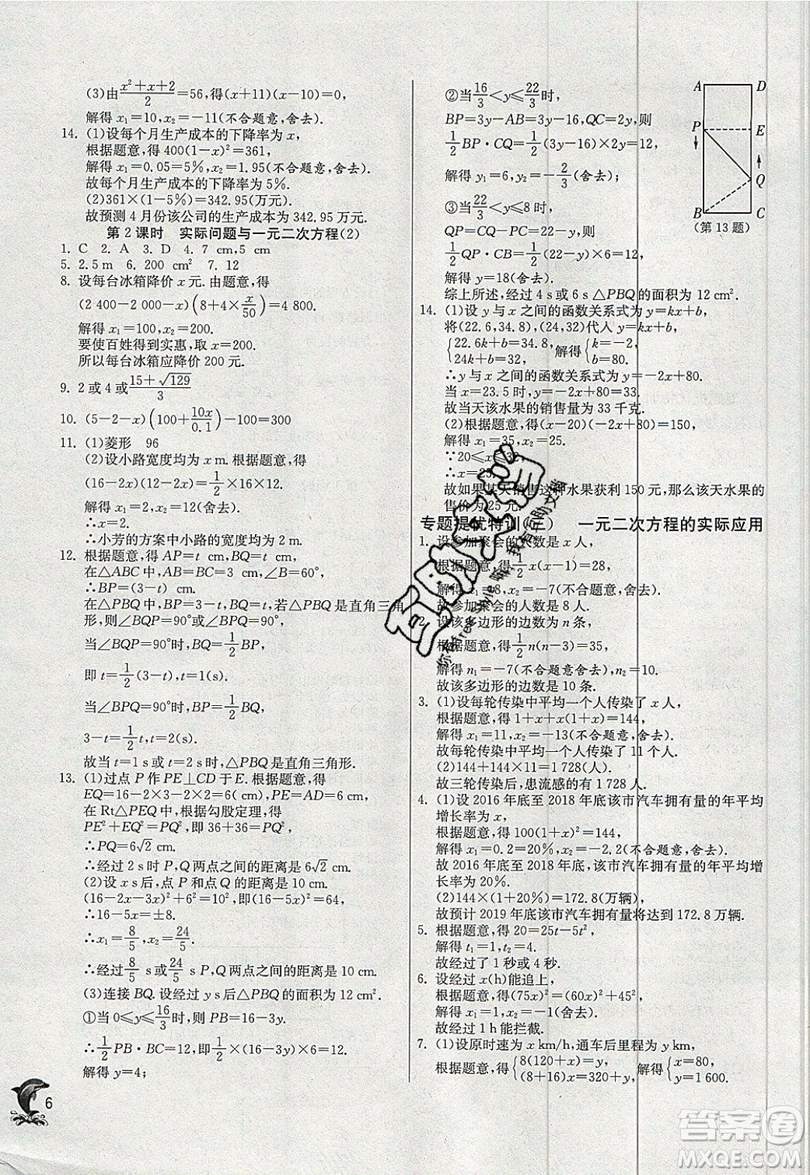 (3)由\frac{x²+x+2}{2}=56,得(x+11)(x-10)=0,
解得 x₁=10,x₂=-11(不合题意,舍去).
14. (1)设每个月生产成本的下降率为 x,
根据题意,得 400(1-x)²=361,
解得 x₁=0.05=5%,x₂=1.95(不合题意,舍去).
故每个月生产成本的下降率为 5%.
(2)361×(1-5%)=342.95(万元).
故预测 4 月份该公司的生产成本为 342.95 万元.
第 2 课时 实际问题与一元二次方程(2)
1. C 2. A 3. D 4. 7 cm,5 cm
5. 2.5 m 6. 200 cm² 7. 12
8. 设每台冰箱降价 x 元.由题意,得
(2 400-2 000-x)(8+4×\frac{x}{50})=4 800,
解得 x₁=100,x₂=200.
要使百姓得到实惠,取 x=200.
所以每台冰箱应降价 200 元.
9. 2 或 4 或\frac{15+√129}{3}
10. (5-2-x)(100+\frac{10x}{0.1})-100=300
11. (1)菱形 96
(2)设小路宽度均为 x m.根据题意,得
(16-2x)(12-x)=\frac{1}{2}×16×12.
解得 x₁=2,x₂=12(舍去).
∴x=2.
∴小芳的方案中小路的宽度均为 2 m.
12. 根据题意,得 AP=t cm,BQ=t cm.
在△ABC 中,AB=BC=3 cm,
∴BP=(3-t) cm.
在△PBQ 中,BP=3-t,BQ=t,若△PBQ 是直角三角
形,则∠BQP=90°或∠BPQ=90°.
当∠BQP=90°时,BQ=\frac{1}{2}BP.
即 t=\frac{1}{2}(3-t),t=1(s).
当∠BPQ=90°时,BP=\frac{1}{2}BQ.
3-t=\frac{1}{2}t,t=2(s).
故当 t=1 s 或 t=2 s 时,△PBQ 是直角三角形.
13. (1)过点 P 作 PE⊥CD 于 E.根据题意,得
EQ=16-2×3-2×2=6(cm),PE=AD=6 cm.
在 Rt△PEQ 中,根据勾股定理,得
PE²+EQ²=PQ²,即 36+36=PQ²,
∴PQ=6√2 cm.
∴经过 2 s 时 P,Q 两点之间的距离是 6√2 cm.
(2)设 x s后,点 P 和点 Q 的距离是 10 cm.
(16-2x-3x)²+6²=10²,即(16-5x)²=64,
∴16-5x=±8.
∴x₁=\frac{8}{5},x₂=\frac{24}{5}.
∴经过\frac{8}{5} s或\frac{24}{5} s,P,Q 两点之间的距离是 10 cm.
(3)连接 BQ.设经过 y s后△PBQ 的面积为 12 cm².
①当 0≤y≤\frac{16}{3}时,则 PB=16-3y,
∴\frac{1}{2}PB·BC=12,即\frac{1}{2}×(16-3y)×6=12,
解得 y=4;
6
②当\frac{16}{3}<y≤\frac{22}{3}时,
BP=3y-AB=3y-16,QC=2y,则
\frac{1}{2}BP·CQ=\frac{1}{2}(3y-16)×2y=12,
解得 y₁=6,y₂=-\frac{2}{3}(舍去);
③当\frac{22}{3}<y≤8 时,
QP=CQ-PQ=22-y,则
\frac{1}{2}QP·CB=\frac{1}{2}(22-y)×6=12,
解得 y=18(舍去).
综上所述,经过 4 s或 6 s△PBQ 的面积为 12 cm².
A
D
P
E
Q
B
C
(第 13 题)
14. (1)设 y 与 x 之间的函数关系式为 y=kx+b,
将(22.6,34.8),(24,32)代入 y=kx+b,
{22.6k+b=34.8, 24k+b=32, 解得{k=-2, b=80.
∴y 与 x 之间的函数关系式为 y=-2x+80.
当 x=23.5 时,y=-2x+80=33.
故当天该水果的销售量为 33 千克.
(2)根据题意,得(x-20)(-2x+80)=150,
解得 x₁=35,x₂=25.
∵20≤x≤32,
∴x=25.
故如果某天销售这种水果获利 150 元,那么该天水果的
售价为 25 元.
专题提优特训(二) 一元二次方程的实际应用
1. 设参加聚会的人数是 x 人,
根据题意,得\frac{1}{2}x(x-1)=28,
解得 x₁=8,x₂=-7(不合题意,舍去).
故参加聚会的人数是 8 人.
2. 设该多边形的边数为 n 条,
根据题意,得\frac{1}{2}n(n-3)=35,
解得 n₁=-7(不合题意,舍去),n₂=10.
故该多边形的边数是 10 条.
3. (1)设每轮传染中平均一个人传染了 x 人,
根据题意,得 1+x+x(1+x)=144,
解得 x₁=11,x₂=-13(不合题意,舍去).
故每轮传染中平均一个人传染了 11 人.
(2)144+144×11=1 728(人).
故三轮传染后,患流感的有 1 728 人.
4. (1)设 2016 年底至 2018 年底该市汽车拥有量的年平均
增长率为 x,
根据题意,得 100(1+x)²=144,
解得 x₁=0.2,x₂=-2.2(不合题意,舍去).
故 2016 年底至 2018 年底该市汽车拥有量的年平均增
长率为 20%.
(2)144×(1+20%)=172.8(万辆).
故预计 2019 年底该市汽车拥有量将达到 172.8 万辆.
5. 根据题意,得 20=25t-5t²,
解得 t₁=1,t₂=4.
故经过了 1 秒或 4 秒.
6. 设经过 x(h)能追上,
根据题意,得(75x)²=(60x)²+45²,
解得 x₁=1,x₂=-1(舍去).
故经过 1 h能拦截.
7. (1)设原时速为 x km/h,通车后里程为 y km,
根据题意,得{8(120+x)=y, (8+16)x=320+y, 解得{x=80, y=1 600.
答案圈
MXQE.COM